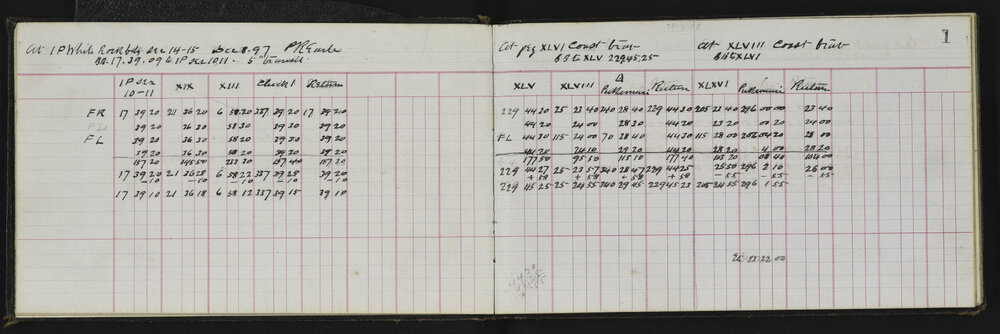 At IP White Rock bdy sec 14-15 Dec 8. 97
BB. 17. 39. 09 to IP sec 10/11 - 5" transit
IP sec 10-11 XIX XIII Check 1 Return
FR 17 39 20 21 36 20 6 58 20 337 39 20 17 39 20
39 20 36 30 58 30 39 30 39 20
FL 39 20 36 30 58 20 39 30 39 20
39 20 36 30 58 20 39 20 39 20
157 20 145 50 157 20
17 39 20 21 36 28 6 58 22 337 39 25 39 20
-10 -10 -10 -10 -10
17 39 10 21 36 18 6 58 12 337 39 15 39 10
At peg XLVI Coast trav
BB to XLV 229 45. 25
XLV XLVIII Return
229 44 30 25 23 40 340 28 40 229 44 30
44 20 24 00 28 30 44 20
FL 44 30 115 24 00 70 28 40 44 30
44 20 24 10 29 20 44 20
177 50 95 50 115 10 177 40
229 44 27 25 23 57 340 28 47 229 44 25
+ 58 + 58 + 58 + 58
229 45 25 25 24 55 340 29 45 229 45 23
At XLVIII Coast trav
BB to XLVI
XLVI Return
205 23 40 296 00 00 23 40
23 20 00 20 24 00
115 28 00 202 04 20 28 00
28 20 4 00 28 20
103 20 08 40 104 00
25 50 296 2 10 26 00
- 55 - 55 - 55
205 24 55 296 1 55
22 00
1